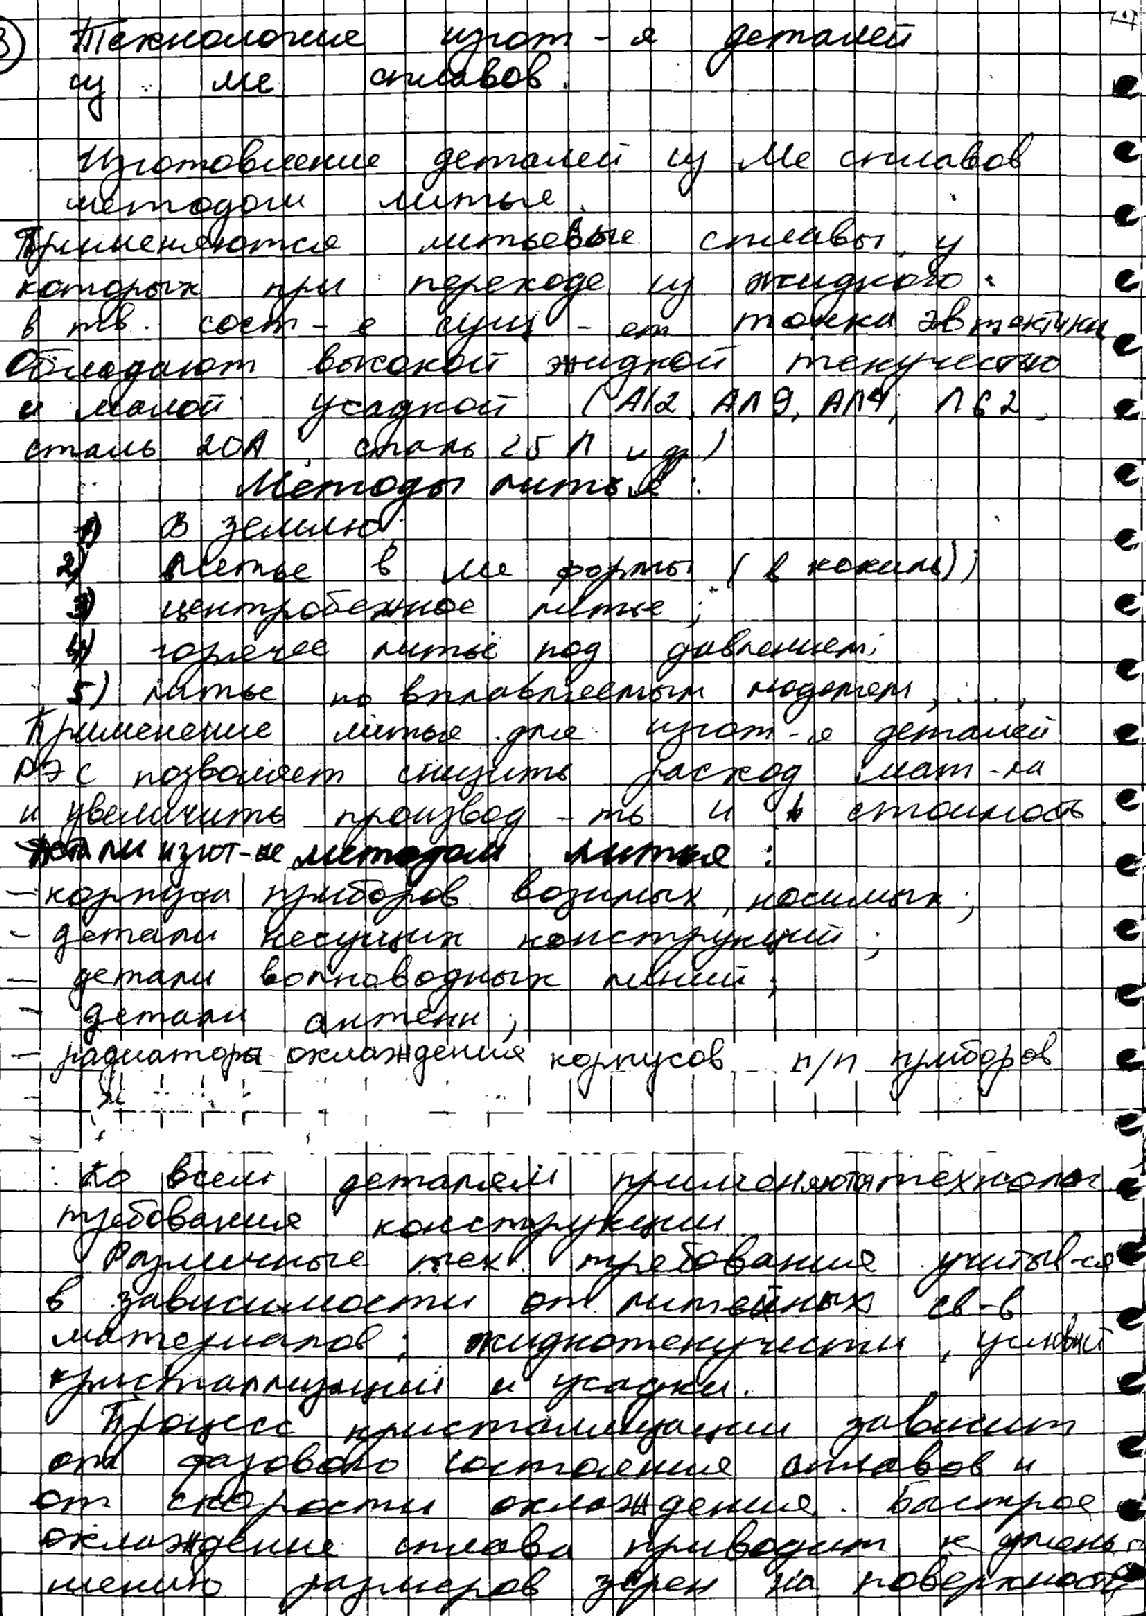 Технология изгот-я деталей
из ме сплавов.
Изготовление деталей из Ме сплавов
методом литья.
Применяются литьевые сплавы, у
которых при переходе из жидкого
в тв. сост-е сущ-ет точка эвтектики
Обладают высокой жидкой текучестью
и малой усадкой (А12, АЛ9, АЛ4, Л62,
сталь 20А, сталь 25Л и др.)
Методы литья:
1) В землю;
2) Литье в ме формы (в кокиль);
3) центробежное литье;
4) горячее литьё под давлением;
5) литье по вплавляемым моделям, ....,
Применение литья для изгот-я деталей
РЭС позволяет снизить расход мат-ла
и увеличить производ-ть и ↓ стоимость
Детали изгот-ые методом литья:
- корпуса приборов возимых, носимых;
- детали несущих конструкций;
- детали волноводных линий;
- детали антенн;
- радиаторы охлаждения корпусов п/п приборов
Ко всем деталям применяются технолог
требования конструкции
Различные тех. требования учитыв-ся
в зависимости от литейных св-в
материалов; жидкотекучести, условий
кристаллизаций и усадки.
Процесс кристаллизации зависит
от фазового состояния сплавов и
от скорости охлаждения. Быстрое
охлаждение сплава приводит к умень-
шению размеров зерен на поверхности